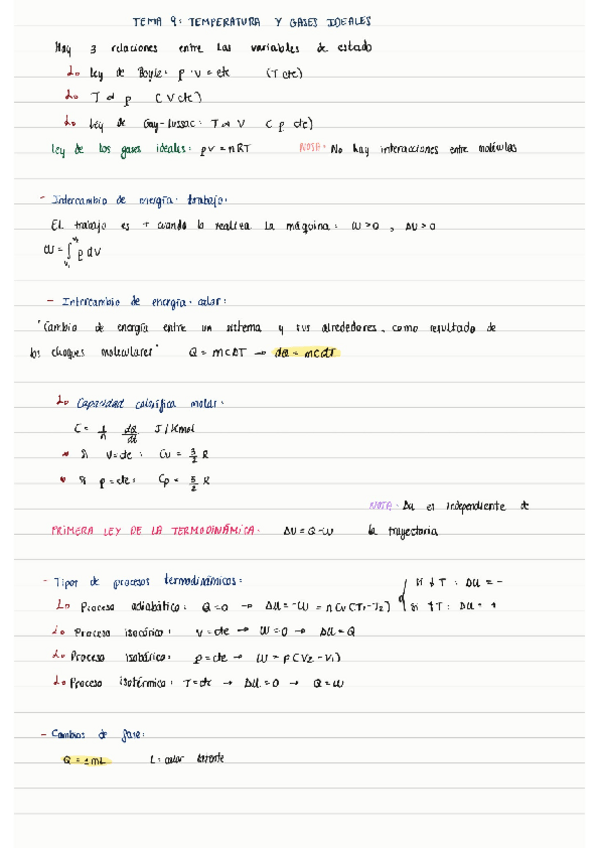 TEMA 9: TEMPERATURA Y GASES IDEALES
Hay 3 relaciones entre las variables de estado
↳ Ley de Boyle: p·v = cte (T cte)
↳ T α p (V cte)
↳ Ley de Gay-Lussac: T α V (p cte)
Ley de los gases ideales: pV = nRT NOTA: No hay interacciones entre moléculas
- Intercambio de energía: trabajo:
El trabajo es + cuando lo realiza la máquina: W>0, ΔV>0
W = ∫ p dV
- Intercambio de energía: calor:
"Cambio de energía entre un sistema y sus alrededores, como resultado de
los choques moleculares" Q = mcΔT → dQ = mcdT
↳ Capacidad calorífica molar:
C = 1/n dQ/dt J/Kmol
* Si V=cte: Cv = 3/2 R
* Si p=cte: Cp = 5/2 R
NOTA: Δu es independiente de
PRIMERA LEY DE LA TERMODINÁMICA: ΔU = Q-W la trayectoria
- Tipos de procesos termodinámicos: Si ↓T: ΔU = -
↳ Proceso adiabático: Q=0 → ΔU=-W = nCv(T1-T2) Si ↑T: ΔU = +
↳ Proceso isocórico: V=cte → W=0 → ΔU=Q
↳ Proceso isobárico: p=cte → W = p(V2-V1)
↳ Proceso isotérmico: T=cte → ΔU=0 → Q=W
- Cambios de fase:
Q = ±mL L: calor latente